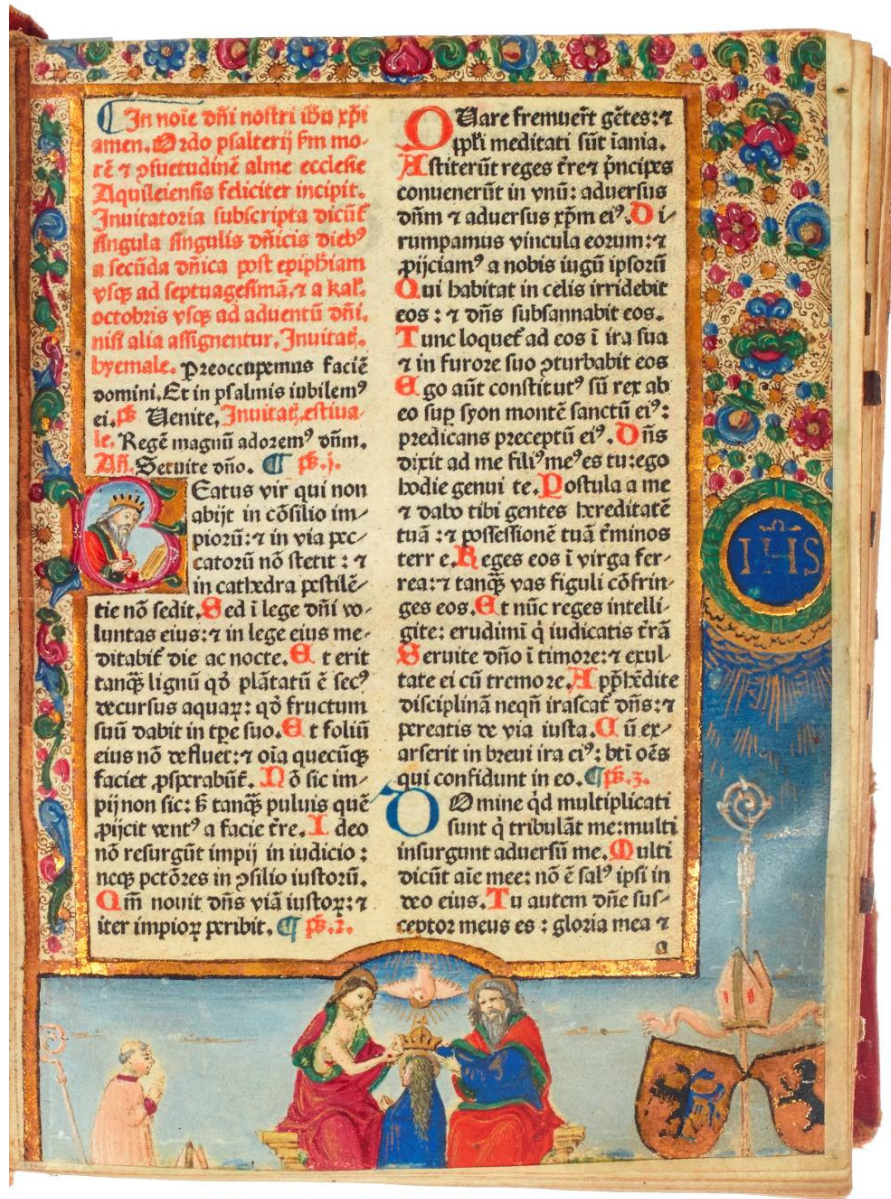 In noīe dn̄i nostri ih̄u xp̄i
amen. Ordo psalterij s̄m mo-
rē ⁊ ꝯsuetudinē alme ecclesie
Aquileiensis feliciter incipit.
Inuitatoria subscripta dicūt᷑
singula singulis dn̄icis diebꝰ
a secūda dn̄ica post epiph̄iam
vsqꝫ ad septuagesimā, ⁊ a kal̄.
octobris vsqꝫ ad aduentū dn̄i,
nisi alia assignentur. Inuitat̄.
hyemale. Preoccupemus faciē
domini. Et in psalmis iubilemꝰ
ei. ps̄. Uenite, Inuitat̄. estiua-
le. Regē magnū adoremꝰ dn̄m.
An̄. Seruite dn̄o. ¶ ps̄. j.
BEatus vir qui non
abijt in cōsilio im-
piorū: ⁊ in via pec-
catorū nō stetit: ⁊
in cathedra pestilē-
tie nō sedit. Sed ī lege dn̄i vo-
luntas eius: ⁊ in lege eius me-
ditabit᷑ die ac nocte. Et erit
tanqꝫ̄ lignū qd̄ plātatū ē secꝰ
decursus aquaꝝ: qd̄ fructum
suū dabit in tp̄e suo. Et foliū
eius nō defluet: ⁊ oīa quecūqꝫ
faciet ꝓsperabūt᷑. Nō sic im-
pij non sic: s̄ tanqꝫ̄ puluis quē
ꝓijcit ventꝰ a facie t̄re. Ideo
nō resurgūt impij in iudicio:
neqꝫ pctōres in ꝯsilio iustorū.
Qm̄ nouit dn̄s viā iustoꝝ: ⁊
iter impioꝝ peribit. ¶ ps̄. 2.
QUare fremuer̄t gētes: ⁊
ppl̄i meditati sūt īania.
Astiterūt reges t̄re ⁊ p̄ncipes
conuenerūt in vnū: aduersus
dn̄m ⁊ aduersus xp̄m eiꝰ. Di-
rumpamus vincula eorum: ⁊
ꝓijciamꝰ a nobis iugū ipsorū
Qui habitat in celis irridebit
eos: ⁊ dn̄s subsannabit eos.
Tunc loquet᷑ ad eos ī ira sua
⁊ in furore suo ꝯturbabit eos
Ego aūt constitutꝰ sū rex ab
eo suꝑ syon montē sanctū eiꝰ:
predicans preceptū eiꝰ. Dn̄s
dixit ad me filiꝰ meꝰ es tu: ego
hodie genui te. Postula a me
⁊ dabo tibi gentes hereditatē
tuā: ⁊ possessionē tuā t̄minos
terre. Reges eos ī virga fer-
rea: ⁊ tanqꝫ̄ vas figuli cōfrin-
ges eos. Et nūc reges intelli-
gite: erudimī q̄ iudicatis t̄rā
Seruite dn̄o ī timore: ⁊ exul-
tate ei cū tremore. Appħēdite
disciplinā neqn̄ irascat᷑ dn̄s: ⁊
pereatis de via iusta. Cū ex-
arserit in breui ira eiꝰ: bt̄i oēs
qui confidunt in eo. ¶ ps̄. 3.
DOmine qd̄ multiplicati
sunt q̄ tribulāt me: multi
insurgunt aduersū me. Multi
dicūt aīe mee: nō ē salꝰ ipsi in
deo eius. Tu autem dn̄e sus-
ceptor meus es: gloria mea ⁊
a
IHS